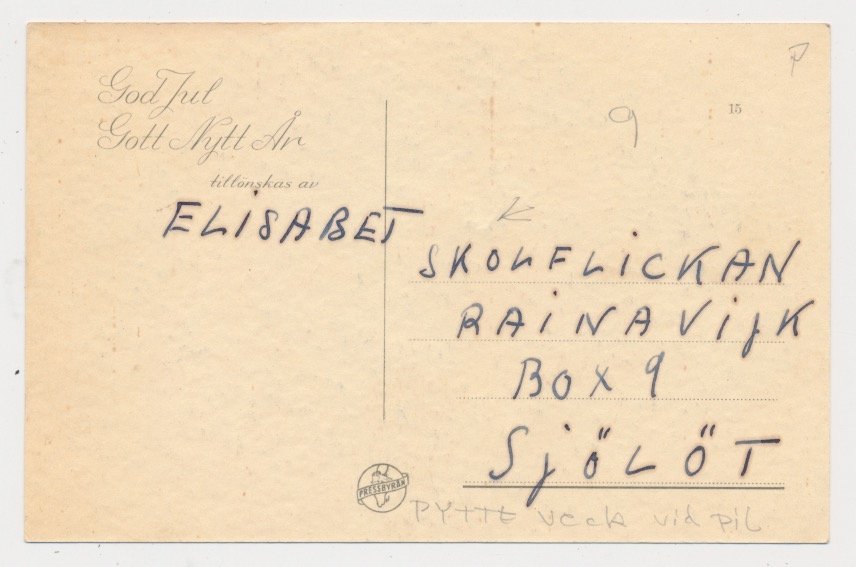 P
God Jul
Gott Nytt År
tillönskas av
ELISABET
9
15
SKOLFLICKAN
RAINA VIJK
BOX 9
SJÖLÖT
PRESSBYRÅN
PYTTE veck vid pil